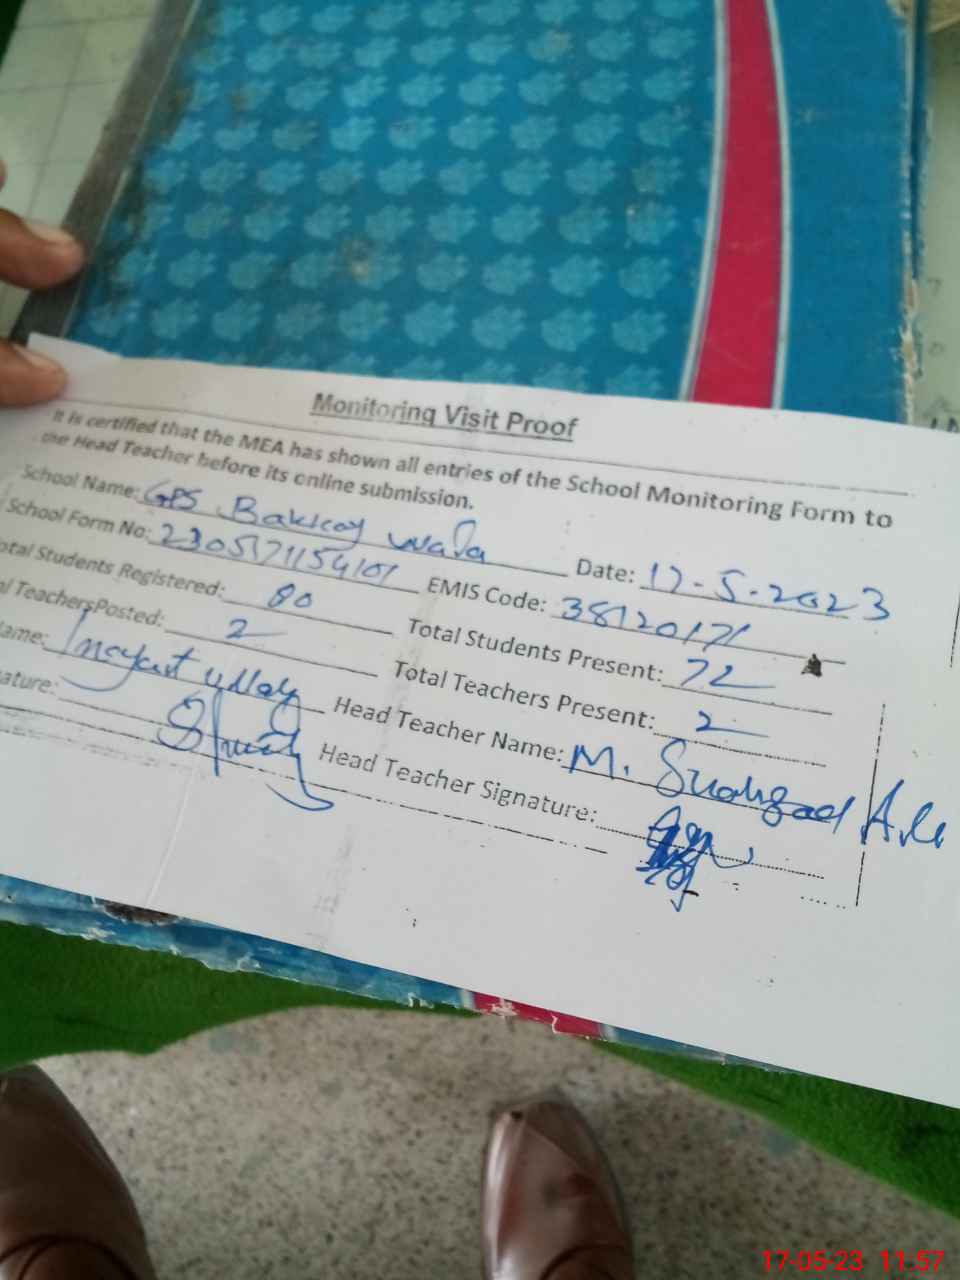 Monitoring Visit Proof
It is certified that the MEA has shown all entries of the School Monitoring Form to
the Head Teacher before its online submission.
School Name: GPS Bakkay wala Date: 17-5-2023
School Form No: 230517115410 EMIS Code: 38120171
otal Students Registered: 80 Total Students Present: 72
al TeachersPosted: 2 Total Teachers Present: 2
Name: Inayat ullah Head Teacher Name: M. Shahzad Ali
ature: Head Teacher Signature:
17-05-23 11:57